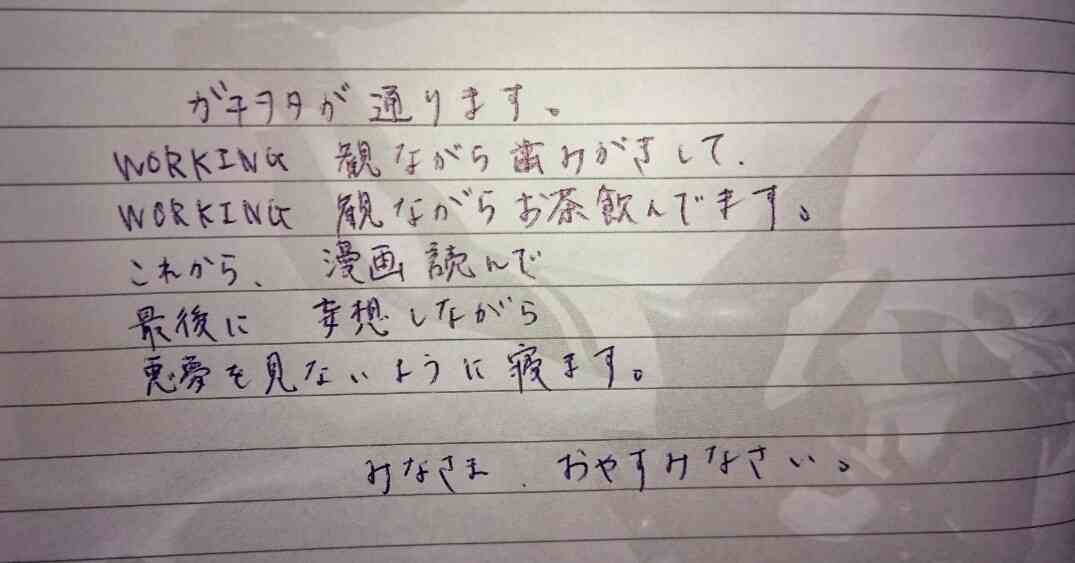 ガチヲタが通ります。
WORKING 観ながら歯みがきして、
WORKING 観ながらお茶飲んでます。
これから、漫画読んで
最後に 妄想しながら
悪夢を見ないように寝ます。
みなさま、おやすみなさい。